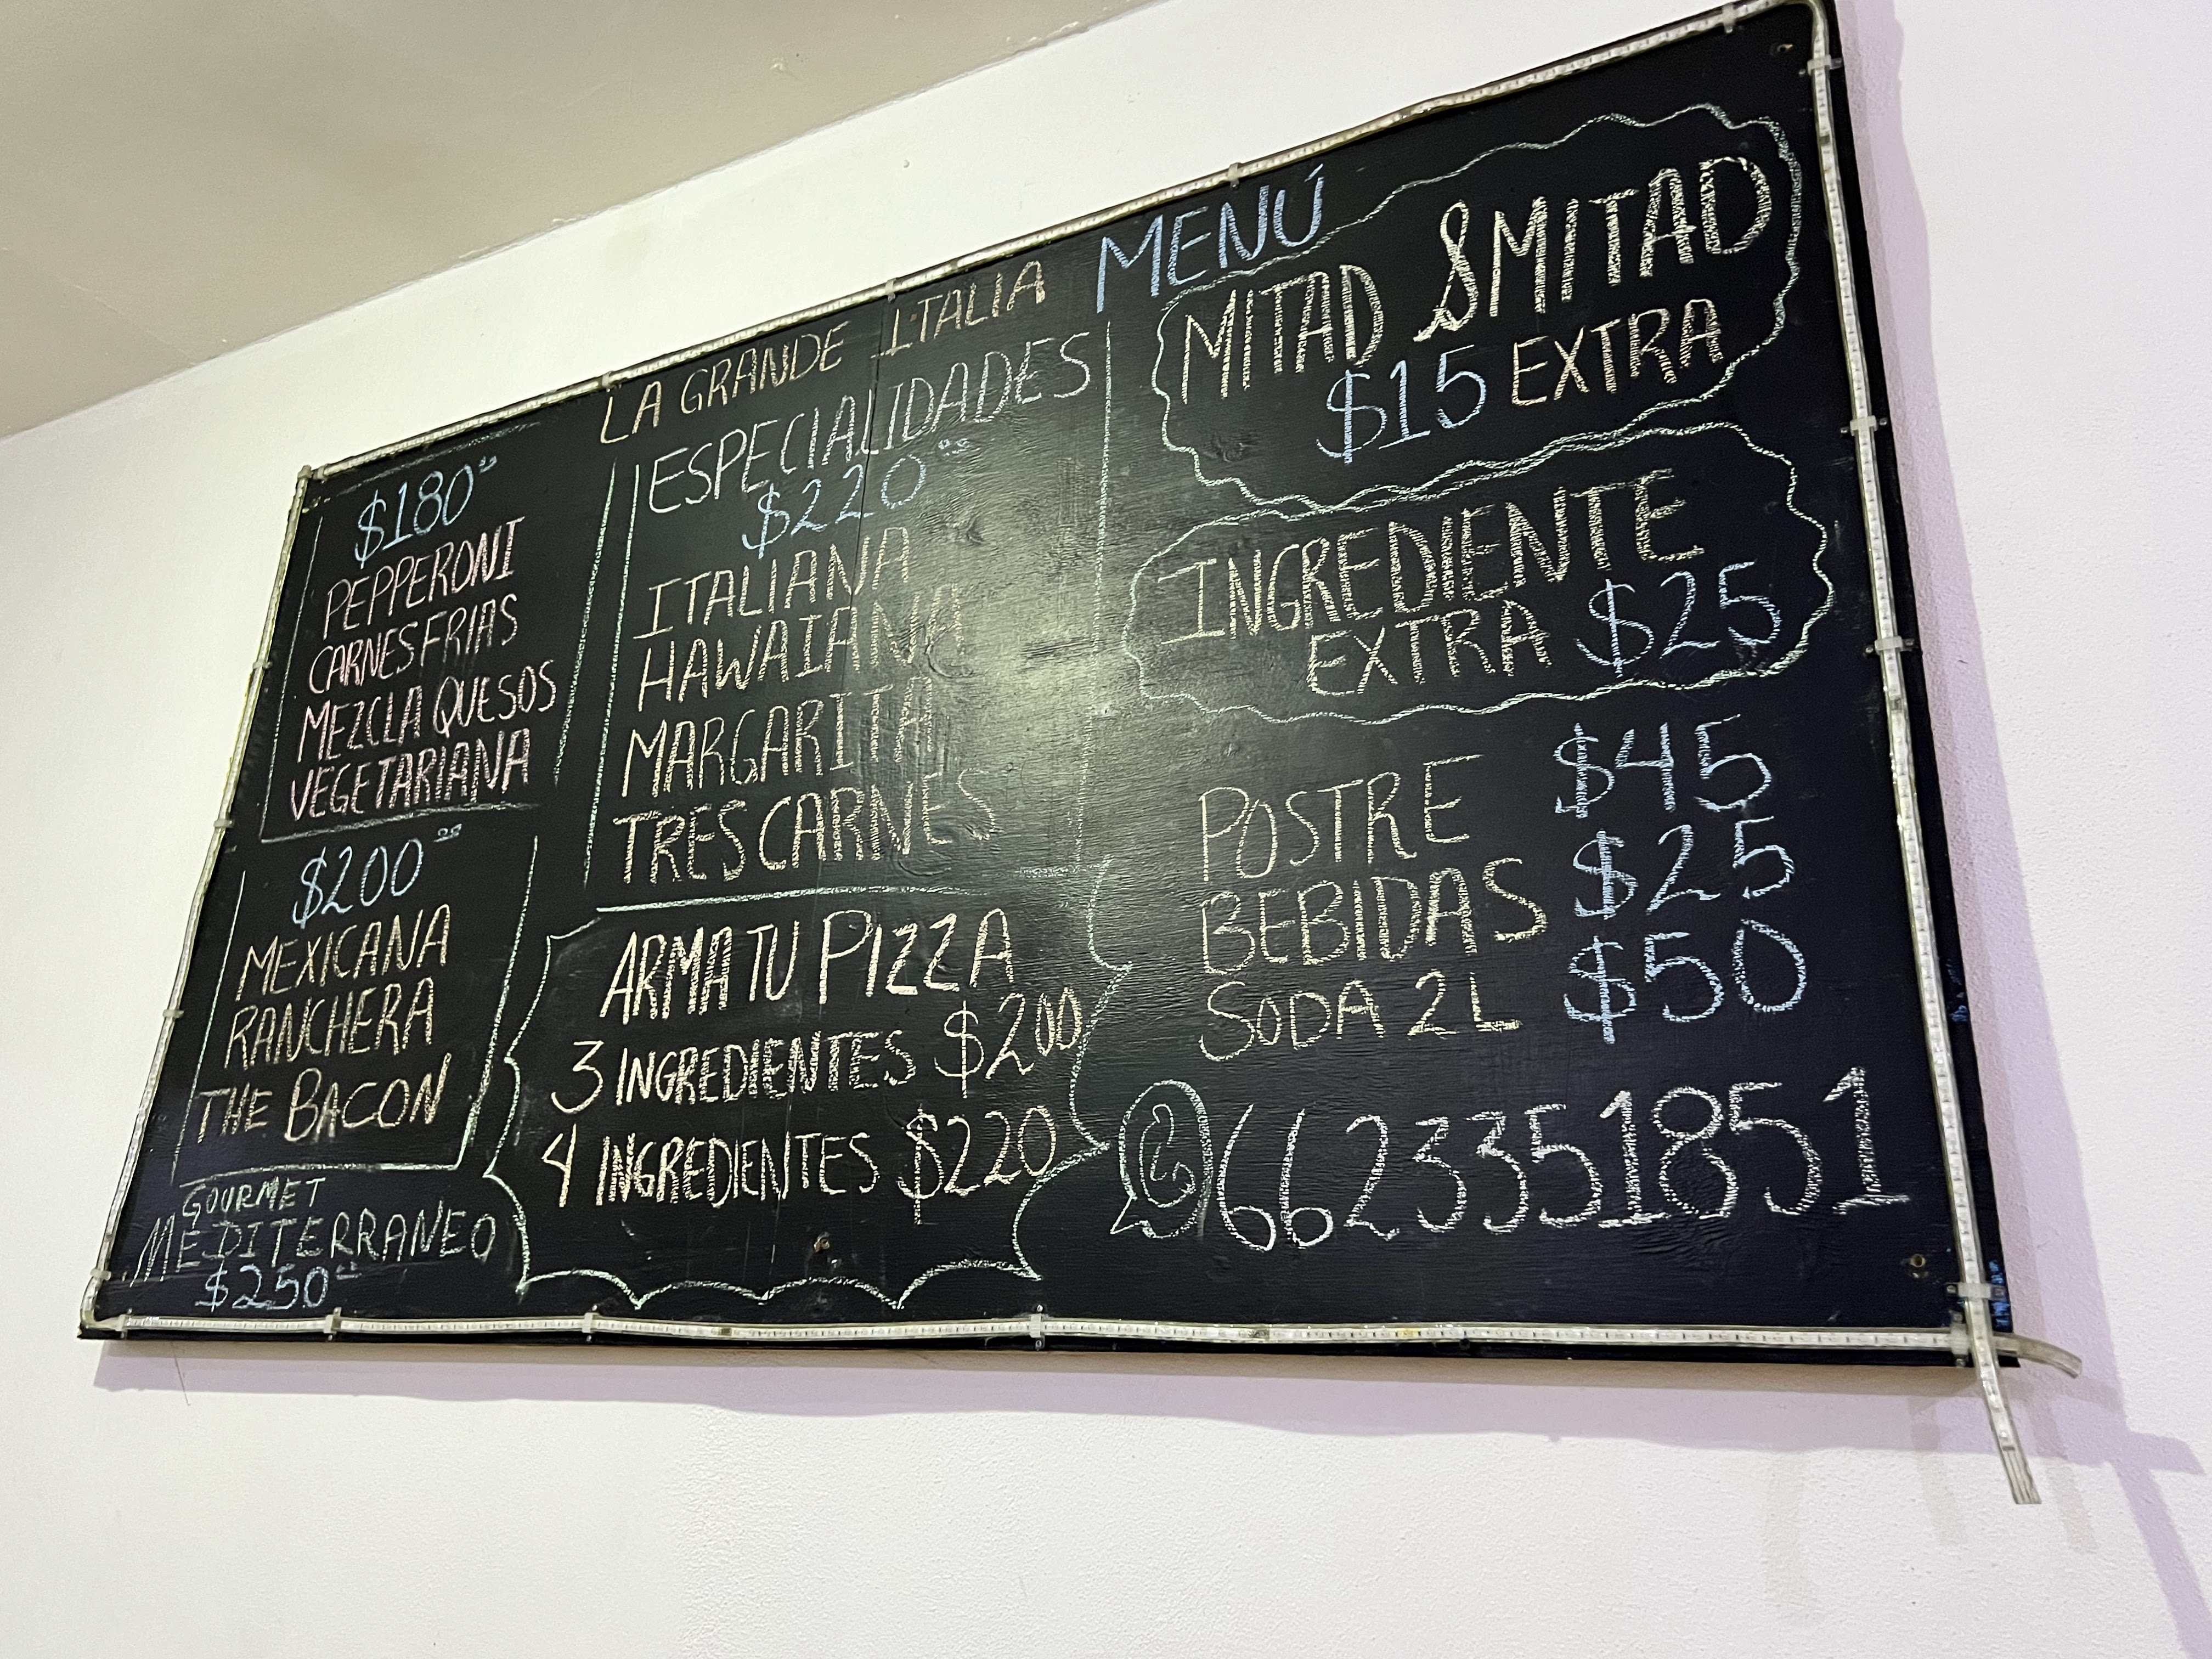 LA GRANDE ITALIA MENÚ
$180.00
PEPPERONI
CARNES FRIAS
MEZCLA QUESOS
VEGETARIANA
$200.00
MEXICANA
RANCHERA
THE BACON
GOURMET
MEDITERRANEO
$250.00
ESPECIALIDADES
$220.00
ITALIANA
HAWAIANA
MARGARITA
TRES CARNES
ARMA TU PIZZA
3 INGREDIENTES $200
4 INGREDIENTES $220
MITAD & MITAD
$15 EXTRA
INGREDIENTE
EXTRA $25
POSTRE $45
BEBIDAS $25
SODA 2L $50
6623351851